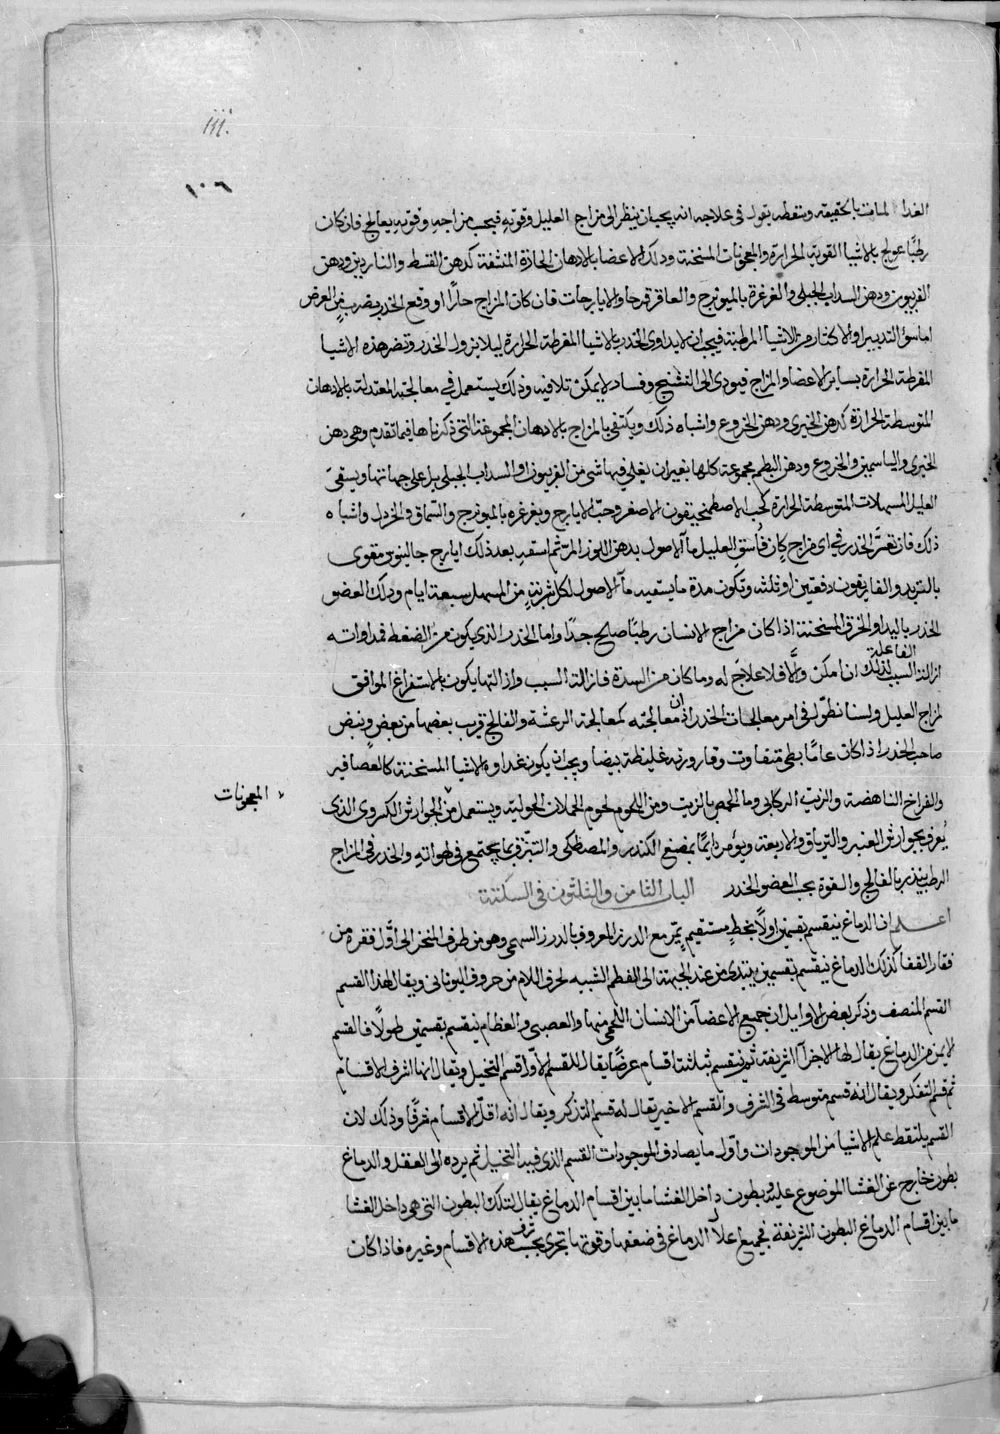 111.
١٠٦
الغدا المانت بالحقيقه وسقطه يقول فى علاجه انه يجب ان ينظر الى مزاج العليل وقوته فبحب مزاجه وقوته يعالج فان كان
رطبًا عولج بالاشيا القوية الحرارة والمعجونات المسخنة ودلك الاعضا بالادهان الحادة المنشفة كدهن القسط والناردين ودهن
الفربيون ودهن السداب الجبلى والغرغرة بالميويزج والعاقرقرحا والايارجات فان كان المزاج حارًا او وقع الخدر بضرب من العرض
اما سؤ التدبير او الاكثار من الاشيا المرطبة فيجب ان لا يداوى الخدر بالاشيا المفرطة الحرارة ليلا يزول الخدر وتضر هذه الاشيا
المفرطة الحرارة بساير الاعضا والمزاج فيودى الى التشنج وفساد لا يمكن تلافيه وذلك يستعمل فى معالجته المعتدلة بالادهان
المتوسطة الحرارة كدهن الخيرى ودهن الخروع واشباه ذلك ويكتفى بالمزاج بالادهان المجموعة التى ذكرناها فيما تقدم وهى دهن
الخيرى والياسمين والخروع ودهن البطم مجموعة كلها بغير ان يغلى فيها شى من الفربيون او السداب الجبلى بل على جهاتها ويسقى
العليل المسهلات المتوسطة الحرارة كحب الاصطمخيقون الاصغر وحب الايارج ويغرغره بالميويزج والسماق والخردل واشباه
ذلك فان تعسّر الخدر فى اى مزاج كان فاسق العليل مآ الاصول بدهن اللوز المرّ ثم اسقه بعد ذلك ايارج جالينوس مقوى
بالتربد والغاريقون دفعتين او ثلثه وتكون مدة ما يسقيه مآ الاصول لكل شربة من المسهل سبعة ايام ودلك العضو
الخدر باليد او الخرق المسخنة اذا كان مزاج الانسان رطبًا صالح جدًا واما الخدر الذى يكون من الضغط فمداواته
ازالة السبب الفاعلة لذلك ان امكن والّا فلا علاج له وما كان من السدة فازالة السبب وازالتها يكون بالاستفراغ الموافق
لمزاج العليل ولسنا نطوّل فى امر معالجات الخدر اذ ان معالجته كمعالجة الرعشة والفالج قريب بعضها من بعض ونبض
صاحب الخدر اذا كان عامًا بطى متفاوت وقارورته غليظة بيضا ويجب ان يكون غداوه الاشيا المسخنة كالعصافير
والفراخ الناهضة والزيت الركابى وما الحمص بالزيت ومن اللحوم لحوم الحملان الحولية ويستعمل من الجوارش الكمروى الذى
المعجونات
يُعرف بجوارش العنبر والترياق والاربعة ويؤمر دايمًا بمضغ الكندر والمصطكى والتبزّق بما يجتمع فى لهواته والخدر فى المزاج
الرطب ينذر بالفالج واللقوة بحب العضو الخدر الباب الثامن والثلثون فى السكتة
اعلم ان الدماغ ينقسم بقسمين اولًا بخطٍ مستقيم يمرّ مع الدرز المعروف بالدرز السهمى وهو من طرف المنخر الى اوّل فقرة من
فقار القفا كذلك الدماغ ينقسم بقسمين يبتدى من عند الجبهة الى العظم الشبيه بحرف اللام من حروف اليونانى ويقال لهذا القسم
القسم المنصف وذكر بعض الاوايل ان جميع الاعضآ من الانسان اللحمى منها والعصبى والعظام ينقسم بقسمين طولًا فالقسم
الايمن من الدماغ يقال لها الاجزآ الشريفة ثم ينقسم ثبلثة اقسام عرضًا يقال للقسم الاوّل قسم التخيل ويقال انها اشرف الاقسام
ثم قسم التفكر ويقال انه قسم متوسط فى الشرف والقسم الاخير يقال له قسم التذكر ويقال انه اقلّ الاقسام شرفًا وذلك لان
القسم يلتقط علم الاشيا من الموجودات واوّل ما يصادف الموجودات القسم الذى فيه التخيل ثم يرده الى العقل والدماغ
بطون خارج عن الغشا الموضوع عليه وبطون داخل الغشا ما بين اقسام الدماغ يقال لتلك البطون التى هى داخل الغشا
ما بين اقسام الدماغ البطون الشريفة فجميع علل الدماغ فى ضعفها وقوتها تجرى بحب شرف هذه الاقسام وغيره فاذا كان